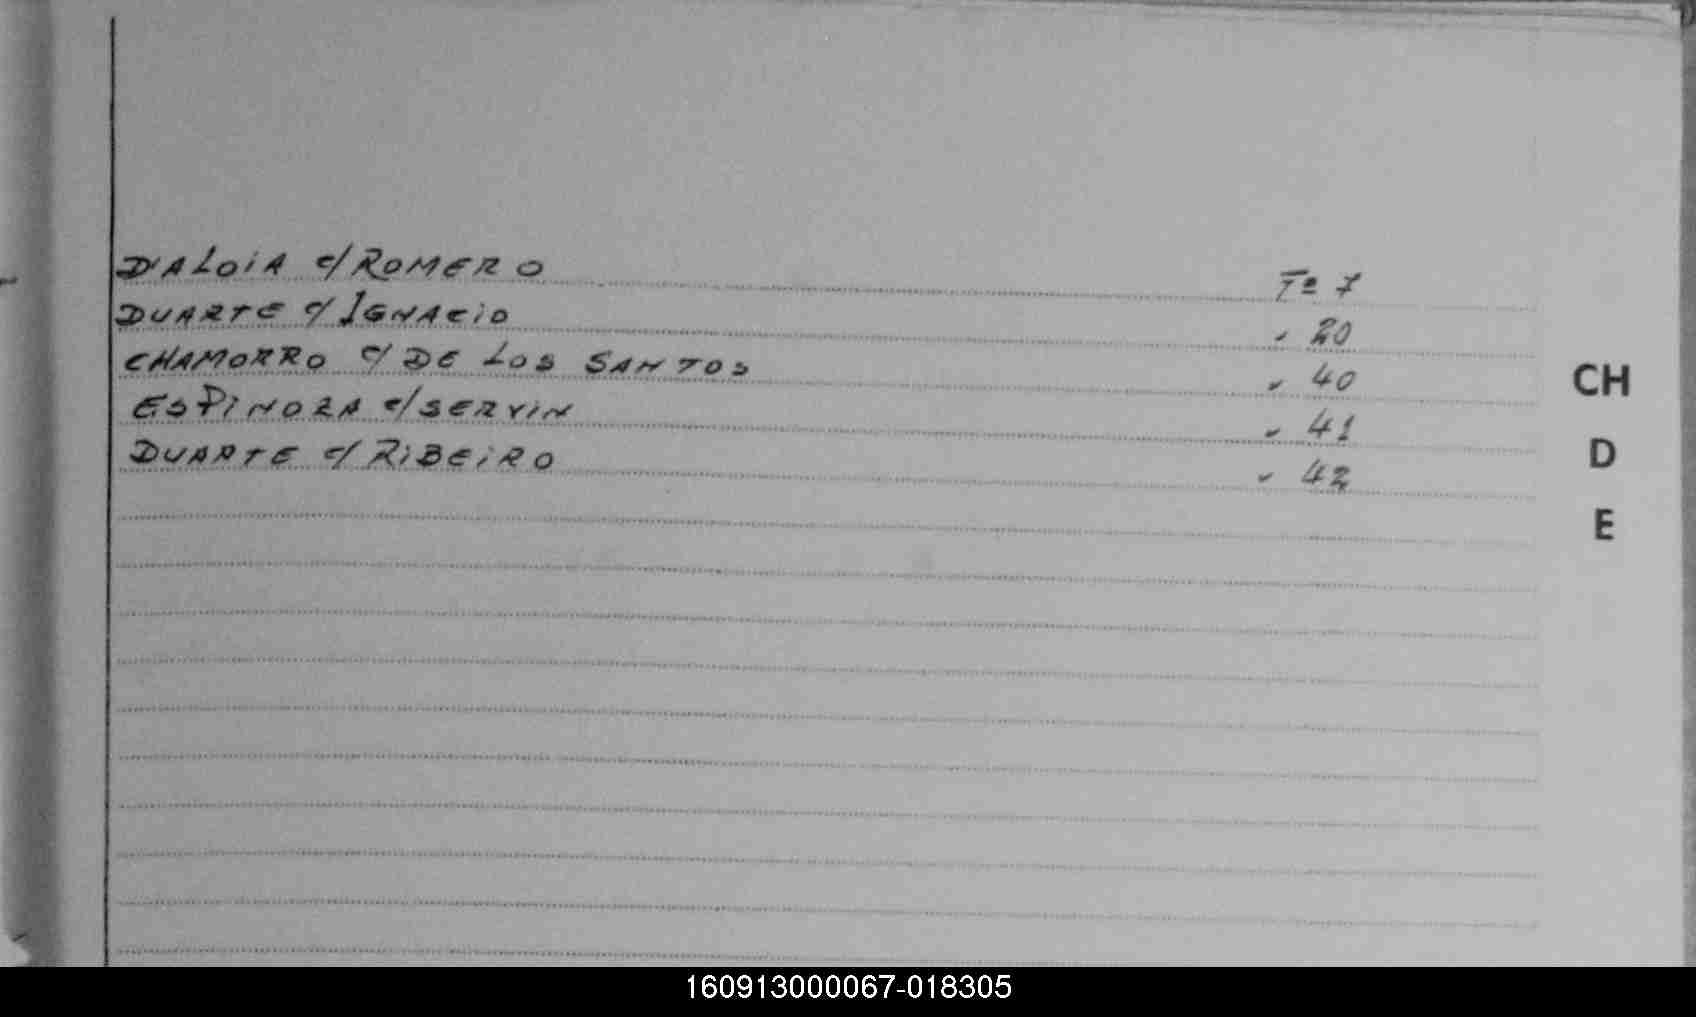 D'ALOIA c/ ROMERO Fº 7
DUARTE c/ IGNACIO " 20
CHAMORRO c/ DE LOS SANTOS " 40
ESPINOZA c/ SERVIN " 41
DUARTE c/ RIBEIRO " 42
CH
D
E
160913000067-018305